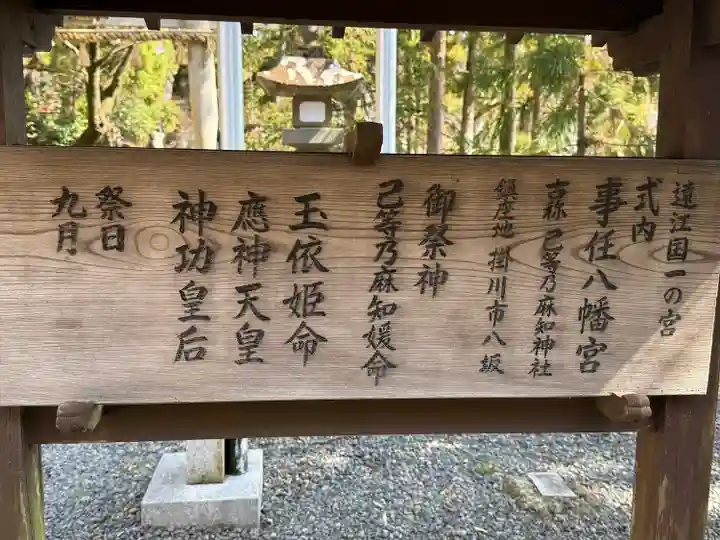 遠江国一の宮
式内
事任八幡宮
古称 己等乃麻知神社
鎮座地 掛川市八坂
御祭神
己等乃麻知媛命
玉依姫命
應神天皇
神功皇后
祭日
九月